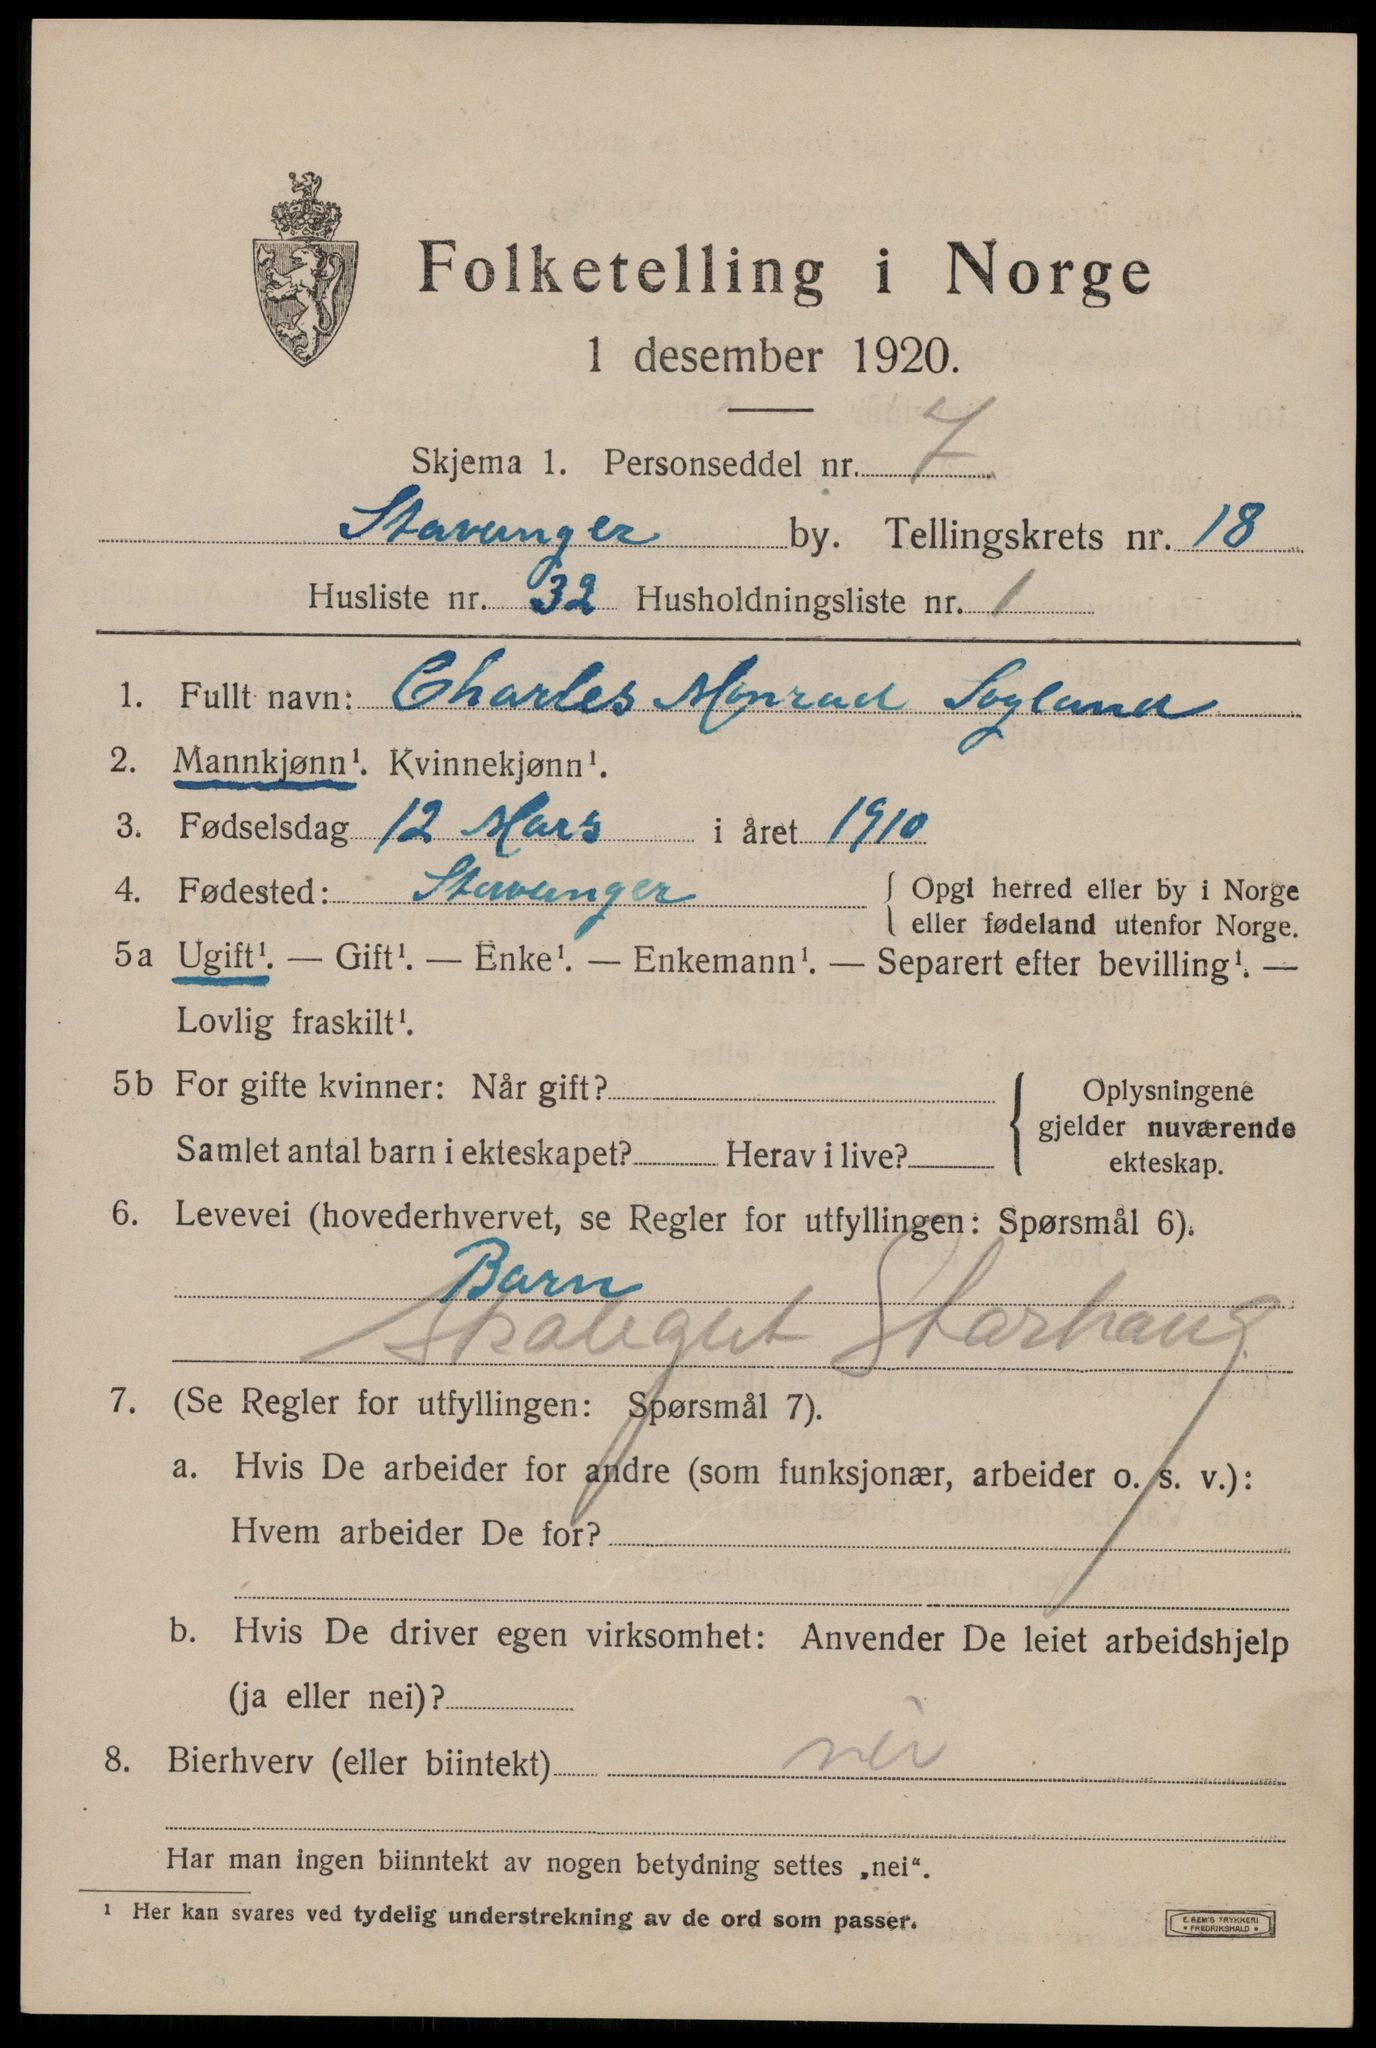 Folketelling i Norge
1 desember 1920.
Skjema 1. Personseddel nr. 7
Stavanger by. Tellingskrets nr. 18
Husliste nr. 32 Husholdningsliste nr. 1
1. Fullt navn: Charles Monrad Sogland
2. Mannkjønn¹. Kvinnekjønn¹.
3. Fødselsdag 12 Mars i året 1910
4. Fødested: Stavanger { Opgi herred eller by i Norge
eller fødeland utenfor Norge.
5a Ugift¹. — Gift¹. — Enke¹. — Enkemann¹. — Separert efter bevilling¹. —
Lovlig fraskilt¹.
5b For gifte kvinner: Når gift?
Samlet antal barn i ekteskapet? Herav i live?
{ Oplysningene
gjelder nuværende
ekteskap.
6. Levevei (hovederhvervet, se Regler for utfyllingen: Spørsmål 6).
Barn
7. (Se Regler for utfyllingen: Spørsmål 7).
a. Hvis De arbeider for andre (som funksjonær, arbeider o. s. v.):
Hvem arbeider De for?
b. Hvis De driver egen virksomhet: Anvender De leiet arbeidshjelp
(ja eller nei)?
8. Bierhverv (eller biintekt) nei
Har man ingen biinntekt av nogen betydning settes „nei“.
¹ Her kan svares ved tydelig understrekning av de ord som passer.
E. SEM'S TRYKKERI
• FREDRIKSHALD •